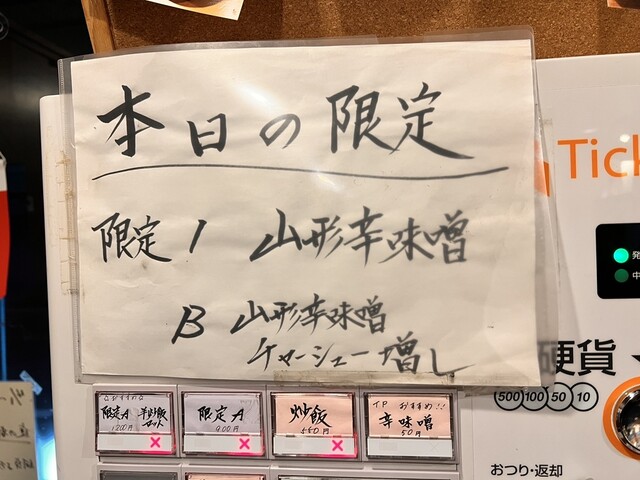 本日の限定
限定1 山形辛味噌
B 山形辛味噌
チャーシュー増し
Tick
硬貨
500 100 50 10
おつり・返却
限定A 半炒飯
セット
1200円
限定A
900円
炒飯
450円
TP おすすめ!!
辛味噌
50円